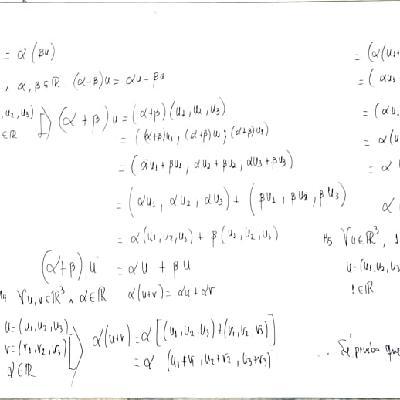 = α(βu)
, α, β ∈ ℝ (α-β)u = αu-βu
u₂, u₃)
∈ℝ
(α+β)u = (α+β)(u₁, u₂, u₃)
= ((α+β)u₁, (α+β)u₂, (α+β)u₃)
= (αu₁+βu₁, αu₂+βu₂, αu₃+βu₃)
= (αu₁, αu₂, αu₃) + (βu₁, βu₂, βu₃)
= α(u₁, u₂, u₃) + β(u₁, u₂, u₃)
(α+β)u = αu + βu
∀u,v∈ℝ³ ∧ α∈ℝ α(u+v) = αu+αv
u=(u₁,u₂,u₃)
v=(v₁,v₂,v₃)
α(u+v) = α[(u₁,u₂,u₃)+(v₁,v₂,v₃)]
= α (u₁+v₁, u₂+v₂, u₃+v₃)
= (α(u₁+
= (αu₁
= (αu₁
= α(u
= α
α
∀u∈ℝ³, 1
u=(u₁,u₂,u₃
1∈ℝ